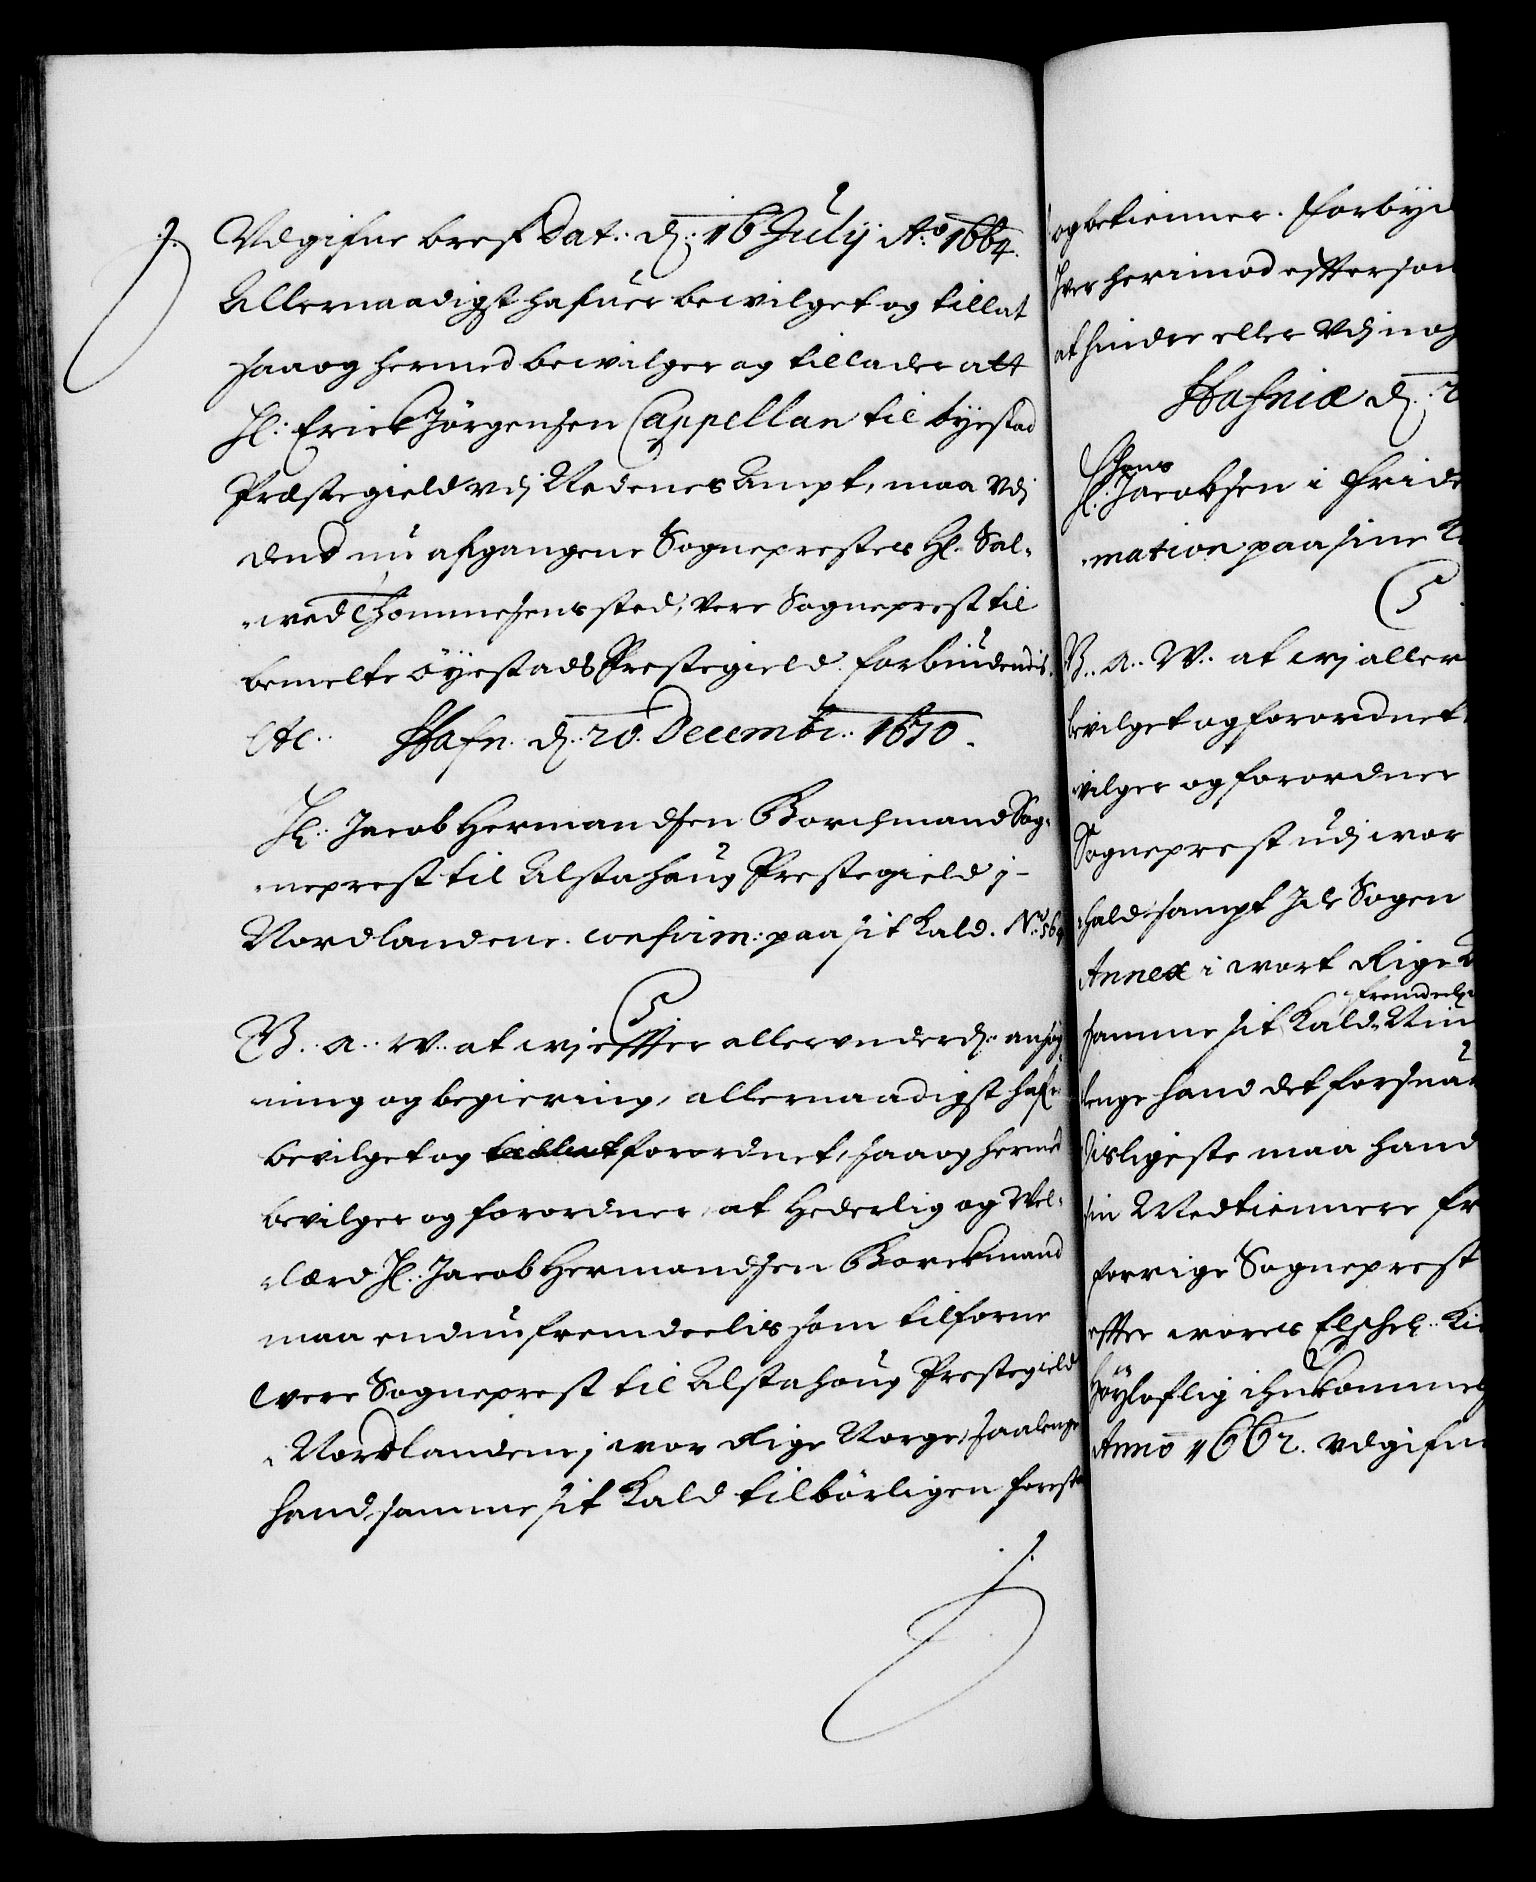 Vdgifne bref Dat: d: 16 Julij Ao 1664.
Allernaadigst hafuer bewilget og tillat
saa og hermed bewilger og tillader att
Hl: Erick Jörgensen Cappellan til öyestad
Præstegield vdj Nedenes Ampt, maa vdj
dend nu afgangene Sogneprestes Hl. Sal-
-wed Thommesens sted, Vere Sogneprest til
bemelte öyestads Prestegield. forbiudendis.
etc: Hafn. d. 20. Decembr. 1670.
Hl: Jacob Hermandsen Borchmand Sog-
-neprest til Alstahoug Prestegield j-
Nordlandene. confirm: paa sit Kald.
C5.
V. a. w. at wj effter allerunderd: ansøg-
-ning og begiering, allernaadigst hafr
bevilget og tillat forordnet, saa og hermed
bevilger og forordner, at Hederlig og Wel-
-lærd Hl: Jacob Hermandsen Borckmand
maa endnu fremdeelis som tilforne
were Sogneprest til Alstahoug Prestegield
i Nordlandene j wor Rige Norge, saalenge
hand samme sit Kald tilbörligen forest
og betienner. forbyd
Hver herimod effterson
at hindre eller Vdj nog
Hafniæ d. 2
Hl: Hans Jacobsen i Fride
-mation paa sine K
C5.
V. a. W. at wj aller
bevilget og forordnet
vilger og forordner
Sogneprest udj wor
hald sampt Ide Sogen
Annex i wort Rige
samme sit Kald fremdeelis
lenge hand det forsuar
disligeste maa hand
sin Medtiennere fr
forrige Sogneprest
effter wores Elschel: Ki
Höyloflig ihukommel
Anno 1662. vdgifne